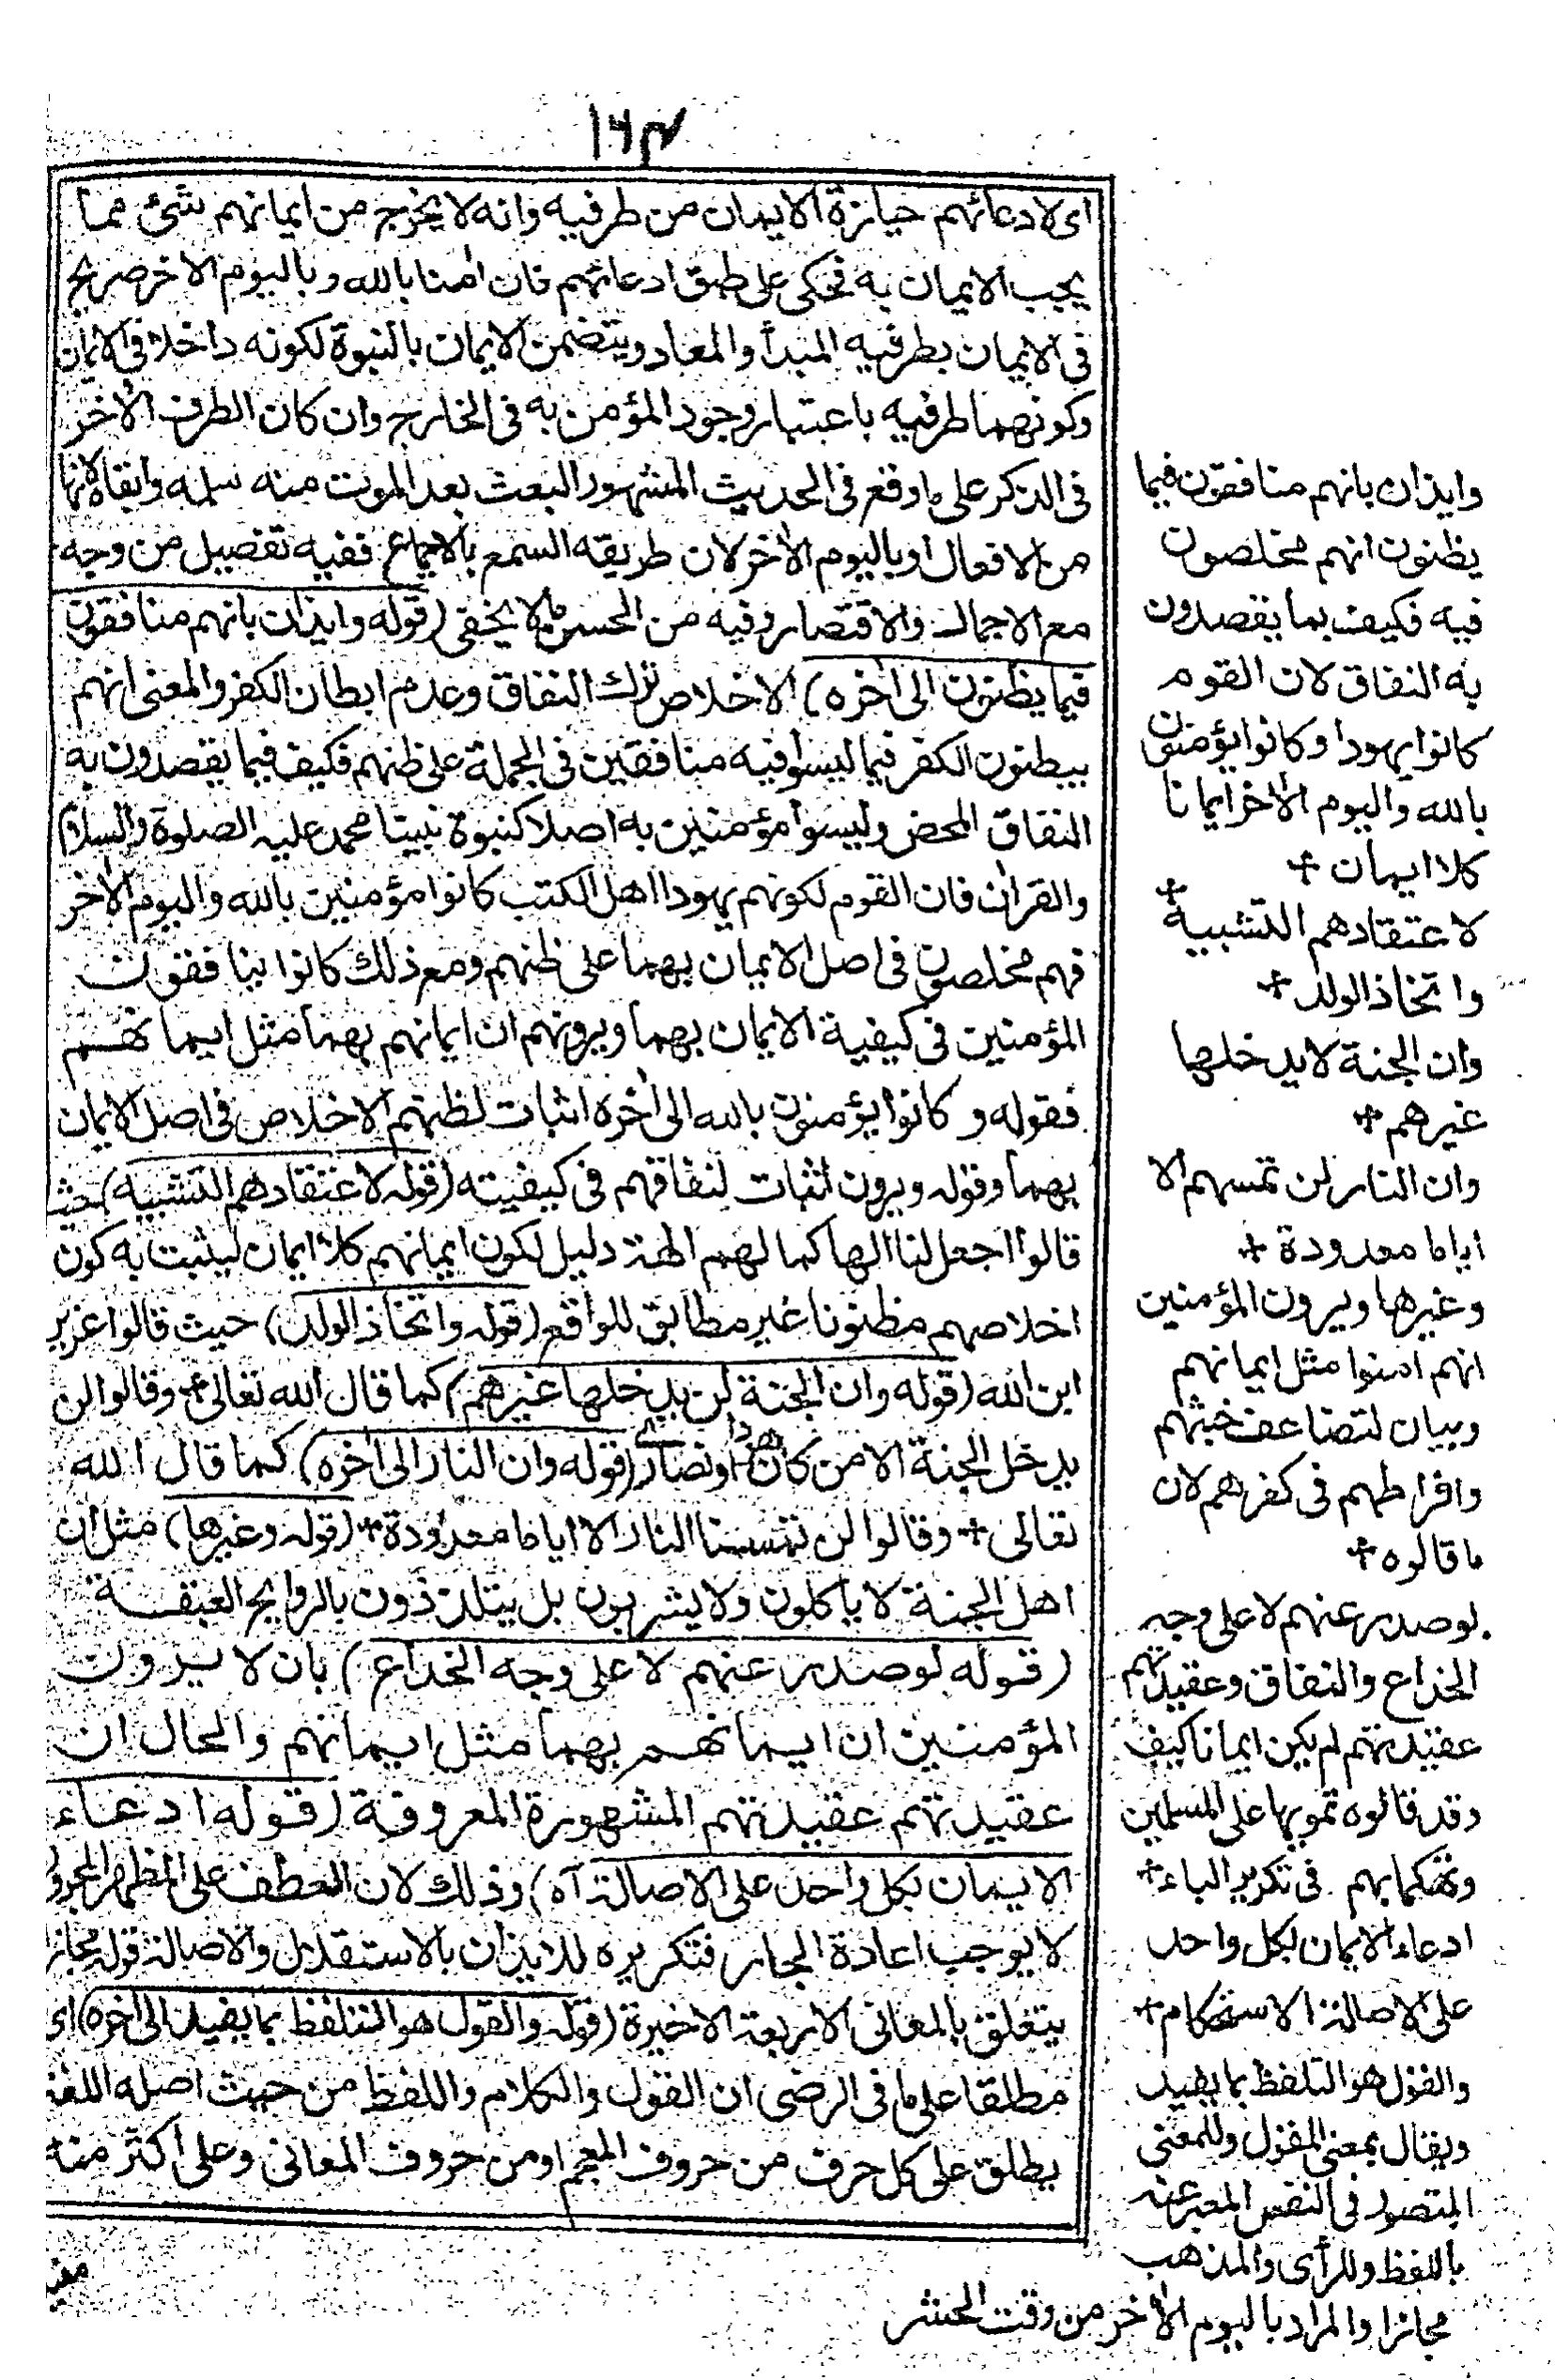 ١٦٣
اى لادعائهم حيازة الايمان من طرفيه وانه لا يخرج من ايمانهم شئ مما
يجب الايمان به فحكى على طبق ادعائهم فان اٰمنا بالله وباليوم الاٰخر صريح
فى الايمان بطرفيه المبدأ والمعاد ويتضمن الايمان بالنبوة لكونه داخلا فى الايمان
وكونهما طرفيه باعتبار وجود المؤمن به فى الخارج وان كان الطرف الاٰخر
فى الذكر على ما وقع فى الحديث المشهور البعث بعد الموت منه سلمه وابقاه لانها
من الافعال او باليوم الاٰخر لان طريقه السمع بالاجماع ففيه تفصيل من وجه
مع الاجمال والاقتصار وفيه من الحسن ما لا يخفى (قوله وايذان بانهم منافقون
فيما يظنون الى اٰخره) الاخلاص ترك النفاق وعدم ابطان الكفر والمعنى انهم
يبطنون الكفر فيما ليسوا فيه منافقين فى الجملة على ظنهم فكيف فيما يقصدون به
النفاق المحض وليسوا مؤمنين به اصلا كنبوة نبينا محمد عليه الصلوة والسلام
والقراٰن فان القوم لكونهم يهودا اهل الكتب كانوا مؤمنين بالله واليوم الاٰخر
فهم مخلصون فى اصل الايمان بهما على ظنهم ومع ذلك كانوا ينافقون
المؤمنين فى كيفية الايمان بهما ويرونهم ان ايمانهم بهما مثل ايمانهم
فقوله وكانوا يؤمنون بالله الى اٰخره اثبات لظنهم الاخلاص فى اصل الايمان
بهما وقوله ويرون اثبات لنفاقهم فى كيفيته (قوله لاعتقادهم التشبيه) حيث
قالوا اجعل لنا الها كما لهم الهة دليل لكون ايمانهم كلا ايمان ليثبت به كون
اخلاصهم مظنونا غير مطابق للواقع (قوله واتخاذ الولد) حيث قالوا عزير
ابن الله (قوله وان الجنة لن يدخلها غيرهم) كما قال الله تعالى وقالوا لن
يدخل الجنة الا من كان هودا او نصارى (قوله وان النار الى اٰخره) كما قال الله
تعالى + وقالوا لن تمسنا النار الا اياما معدودة + (قوله وغيرها) مثل ان
اهل الجنة لا ياكلون ولا يشربون بل يتلذذون بالروايح العبقة
(قوله لو صدر عنهم لا على وجه الخداع) بان لا يرون
المؤمنين ان ايمانهم بهما مثل ايمانهم والحال ان
عقيدتهم عقيدتهم المشهورة المعروفة (قوله ادعاء
الايمان بكل واحد على الاصالة اه) وذلك لان العطف على المظهر المجرور
لا يوجب اعادة الجار فتكريره للايذان بالاستقلال والاصالة قوله مجازا
يتعلق بالمعانى الاربعة الاخيرة (قوله والقول هو التلفظ بما يفيد الى اٰخره) اى
مطلقا على ما فى الرضى ان القول والكلام واللفظ من حيث اصله اللغة
يطلق على كل حرف من حروف المعجم او من حروف المعانى وعلى اكثر منه
وايذان بانهم منافقون فيما
يظنون انهم مخلصون
فيه فكيف بما يقصدون
به النفاق لان القوم
كانوا يهودا وكانوا يؤمنون
بالله واليوم الاٰخر ايمانا
كلا ايمان +
لاعتقادهم التشبيه +
واتخاذ الولد +
وان الجنة لا يدخلها
غيرهم +
وان النار لن تمسهم الا
اياما معدودة +
وغيرها ويرون المؤمنين
انهم اٰمنوا مثل ايمانهم
وبيان لتضاعف خبثهم
وافراطهم فى كفرهم لان
ما قالوه +
لو صدر عنهم لا على وجه
الخداع والنفاق وعقيدتهم
عقيدتهم لم يكن ايمانا كيف
وقد قالوه تمويها على المسلمين
وتهكما بهم فى تكرير الباء +
ادعاء الايمان بكل واحد
على الاصالة الاستحكام +
والقول هو التلفظ بما يفيد
ويقال بمعنى المقول وللمعنى
المتصور فى النفس المعبر عنه
باللفظ وللرأى والمذهب
مجازا والمراد باليوم الاٰخر من وقت الحشر